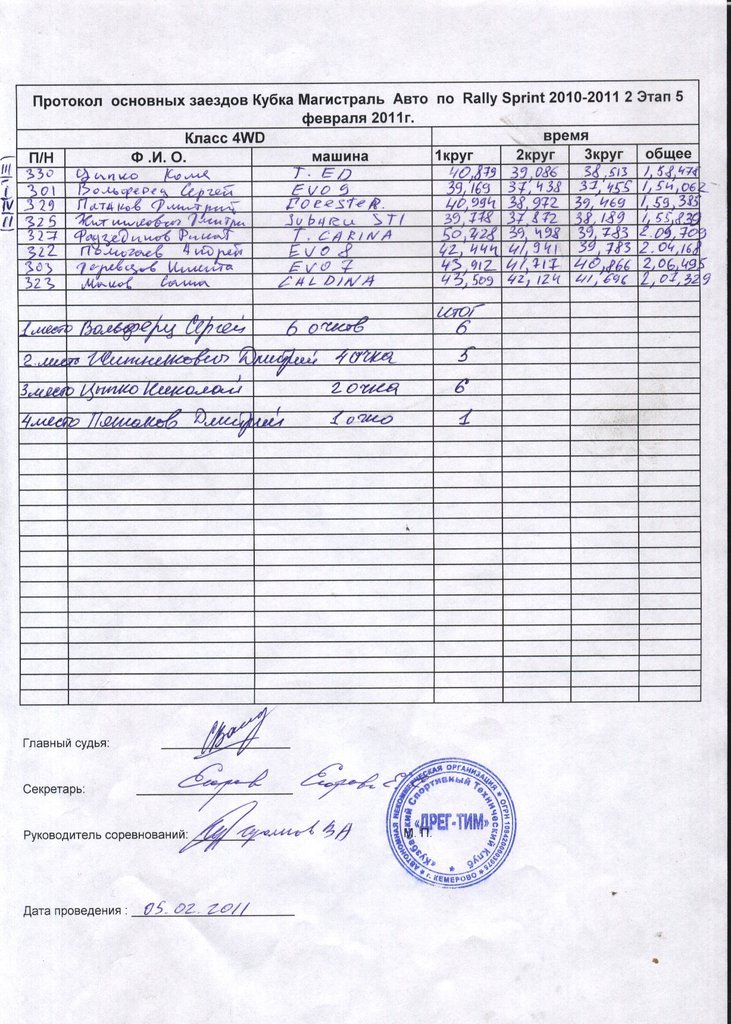 Протокол основных заездов Кубка Магистраль Авто по Rally Sprint 2010-2011 2 Этап 5
февраля 2011г.
Класс 4WD время
П/Н Ф .И. О. машина 1круг 2круг 3круг общее
III 330 Цыпко Коля T. ED 40,879 39,086 38,513 1,58,478
I 301 Вольферц Сергей EVO 9 39,169 37,438 37,455 1,54,062
IV 329 Патаков Дмитрий Forester. 40,994 38,972 39,469 1,59,385
II 325 Житникович Дмитри Subaru STI 39,778 37,872 38,189 1,55,839
327 Ринат T. CARINA 50,428 39,498 39,783 2.09,709
322 Помогаев Андрей EVO 8 42,444 41,941 39,783 2.04,168
303 Никита EVO 7 43,912 41,717 40,866 2,06,495
323 Маков Саша CALDINA 43,509 42,124 41,696 2,07,329
итог
1место Вольферц Сергей 6 очков 6
2.место Житникович Дмитрий 4 очка 5
3место Цыпко Николай 2 очка 6
4место Патаков Дмитрий 1 очко 1
Главный судья:
Секретарь: Егорова Егорова
Руководитель соревнований:
М. П.
АВТОНОМНАЯ НЕКОММЕРЧЕСКАЯ ОРГАНИЗАЦИЯ
«Кузбасский Спортивный Технический Клуб
«ДРЕГ-ТИМ»
г. КЕМЕРОВО
Дата проведения : 05.02.2011